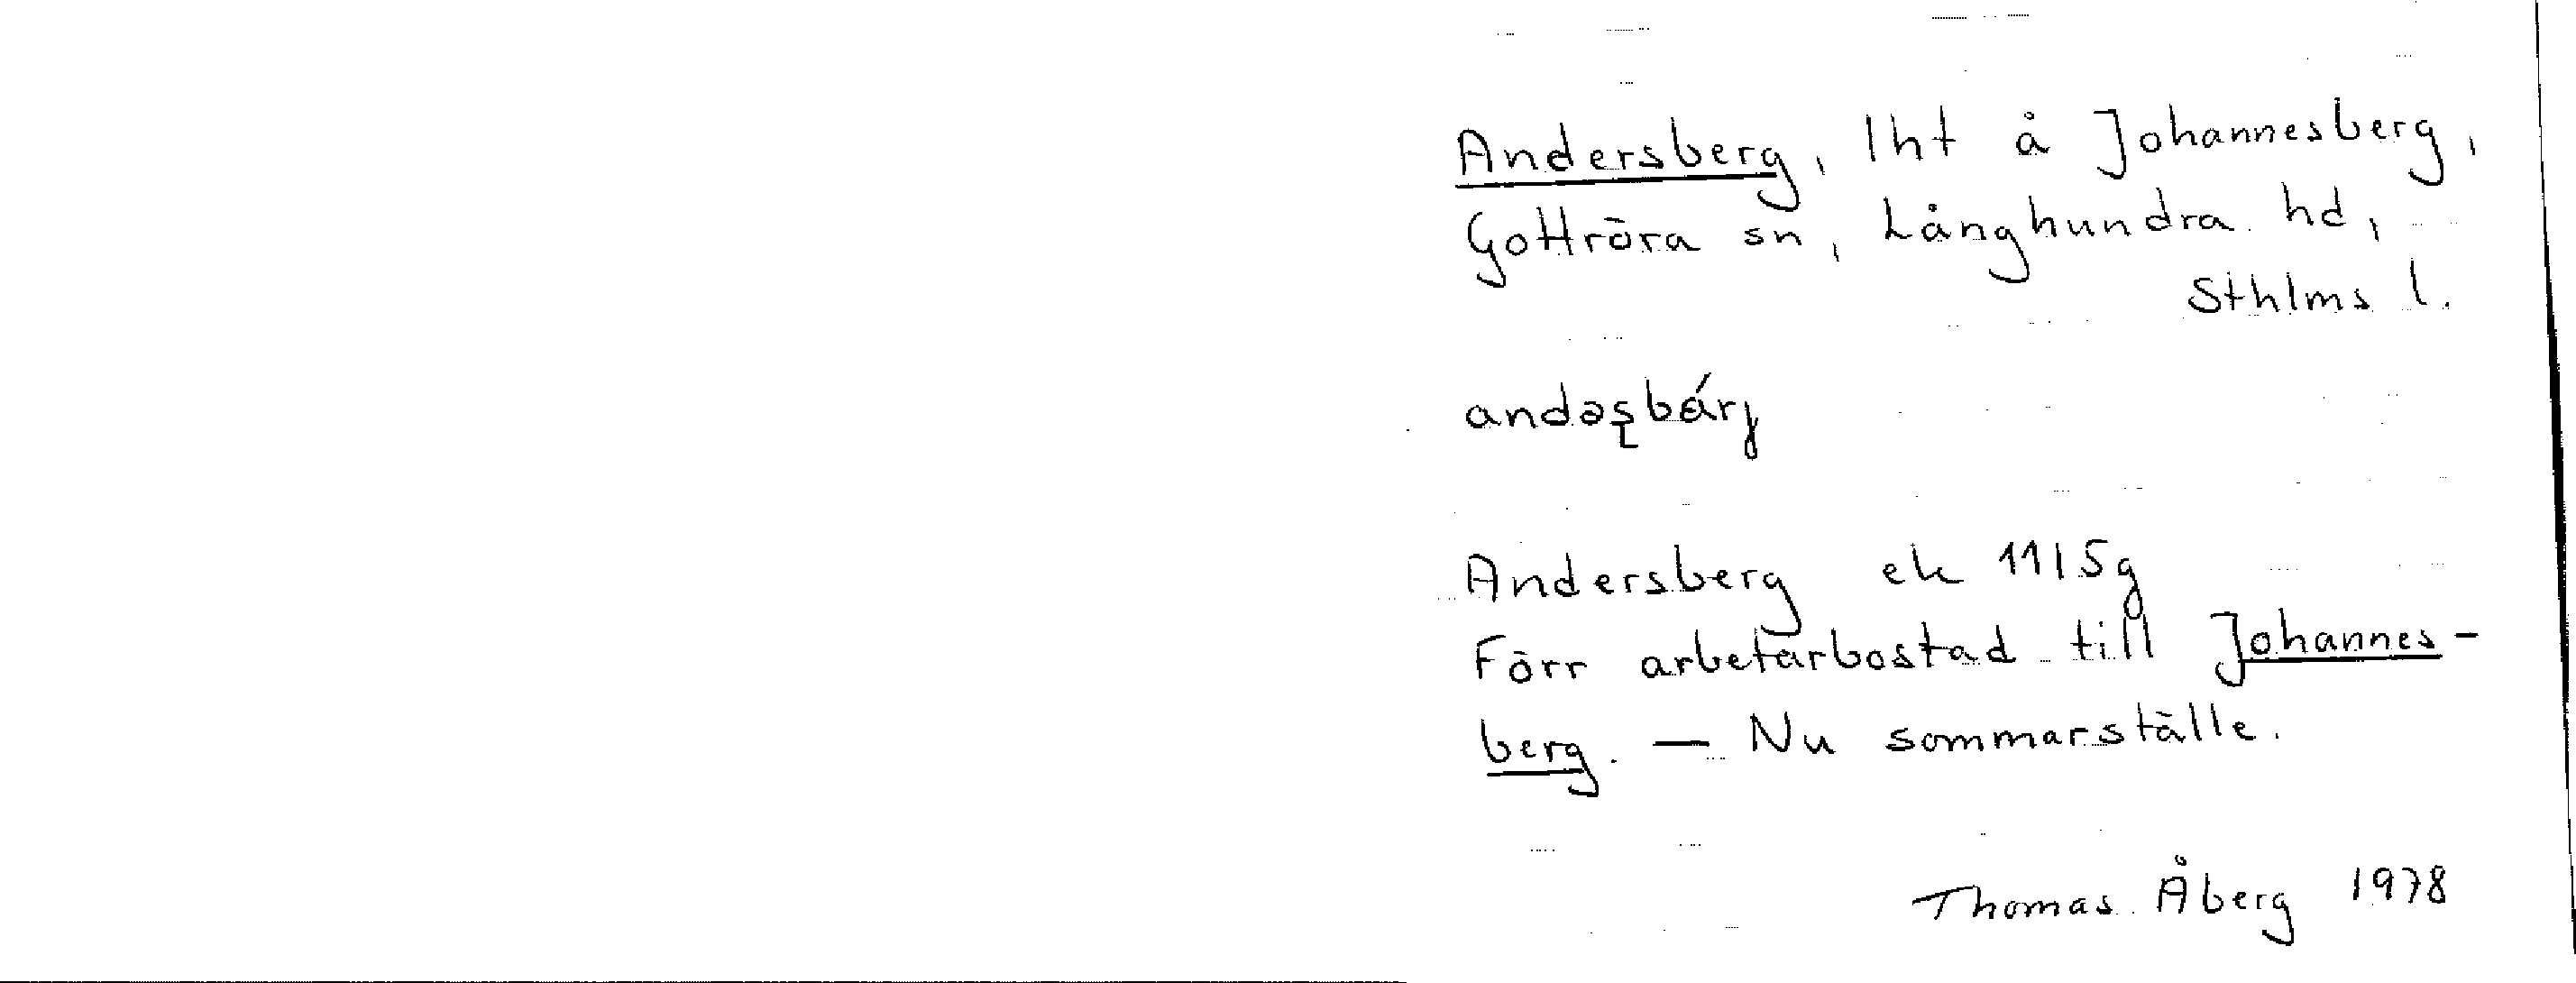 Andersberg, lht å Johannesberg,
Gottröra sn, Långhundra hd,
Sthlms l.
andəʂbárj
Andersberg ek 11I5g
Förr arbetarbostad till Johannes-
berg. — Nu sommarställe.
Thomas Åberg 1978